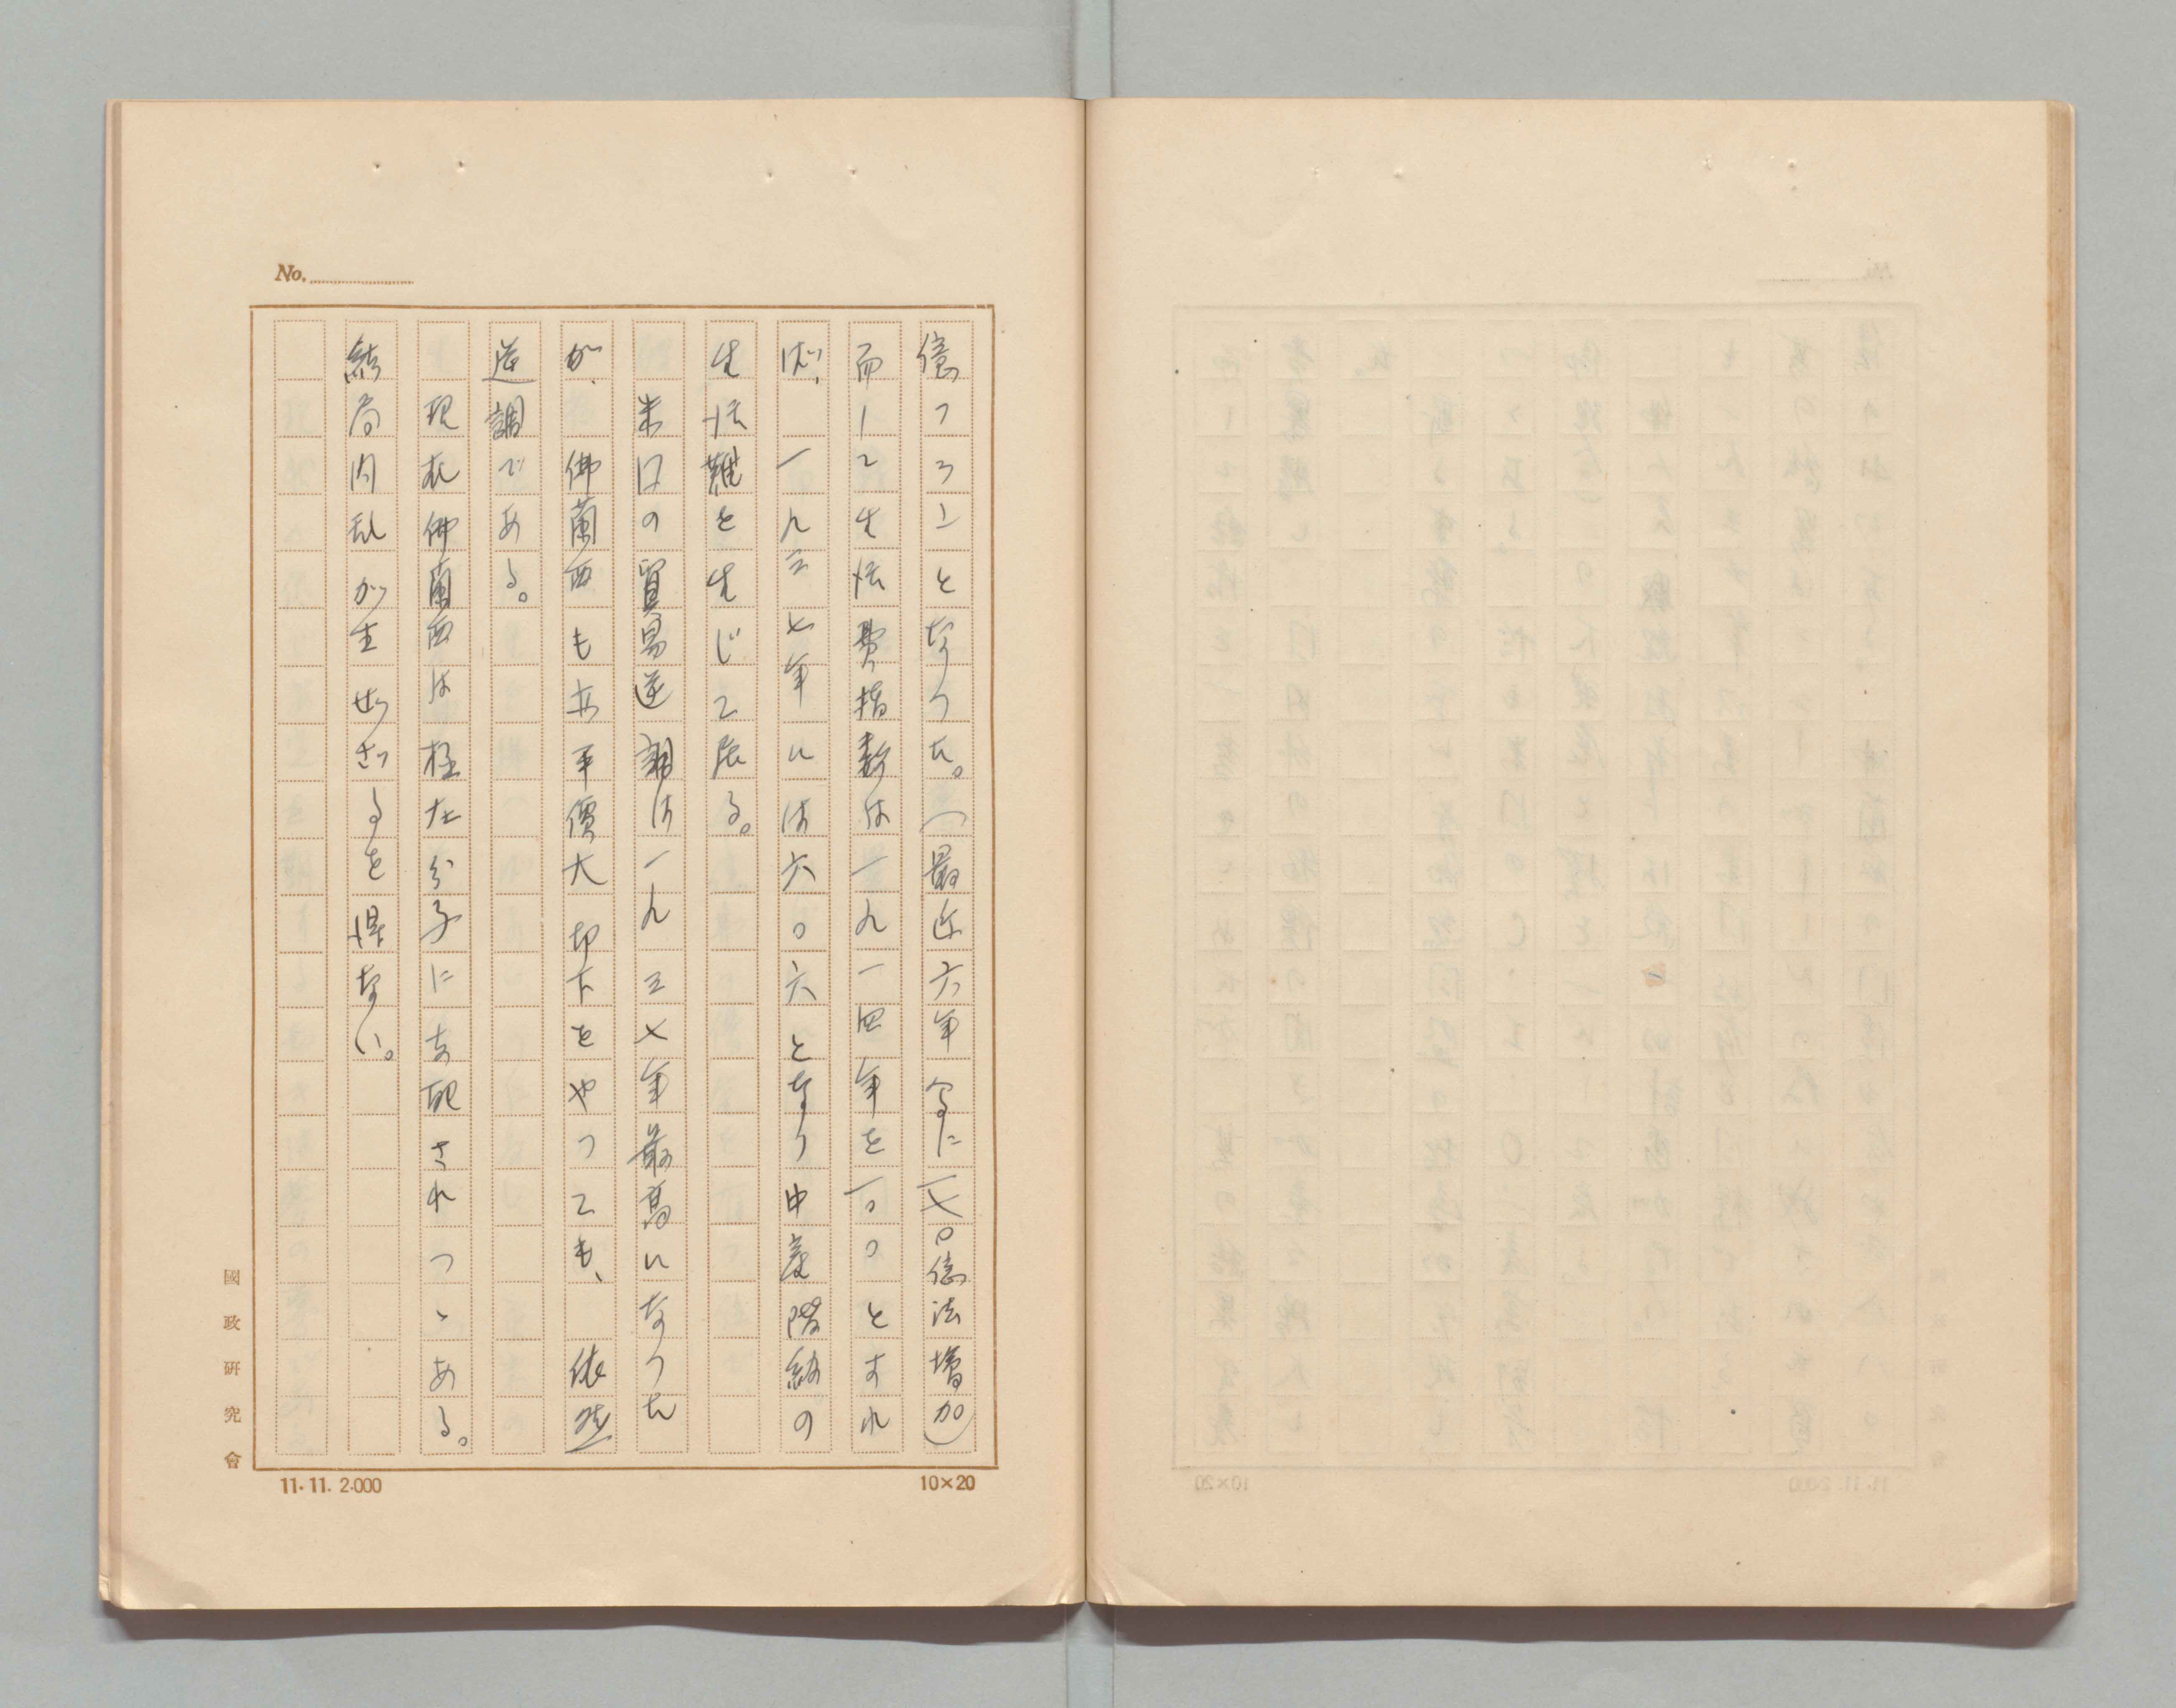 No.
億フランとなった。(最近六年間に一七〇億法増加)
而して生活費指数は一九一四年を一〇〇とすれ
ば、一九三七年には六〇六となり中産階級の
生活難を生じて居る。
米国の貿易逆調は一九三七年最高になった
が、佛蘭西も亦平價大切下をやっても、依然
逆調である。
現在佛蘭西は極左分子に支配されつゝある。
結局内乱が生ぜざるを得ない。
國政研究會
11.11. 2.000
10×20